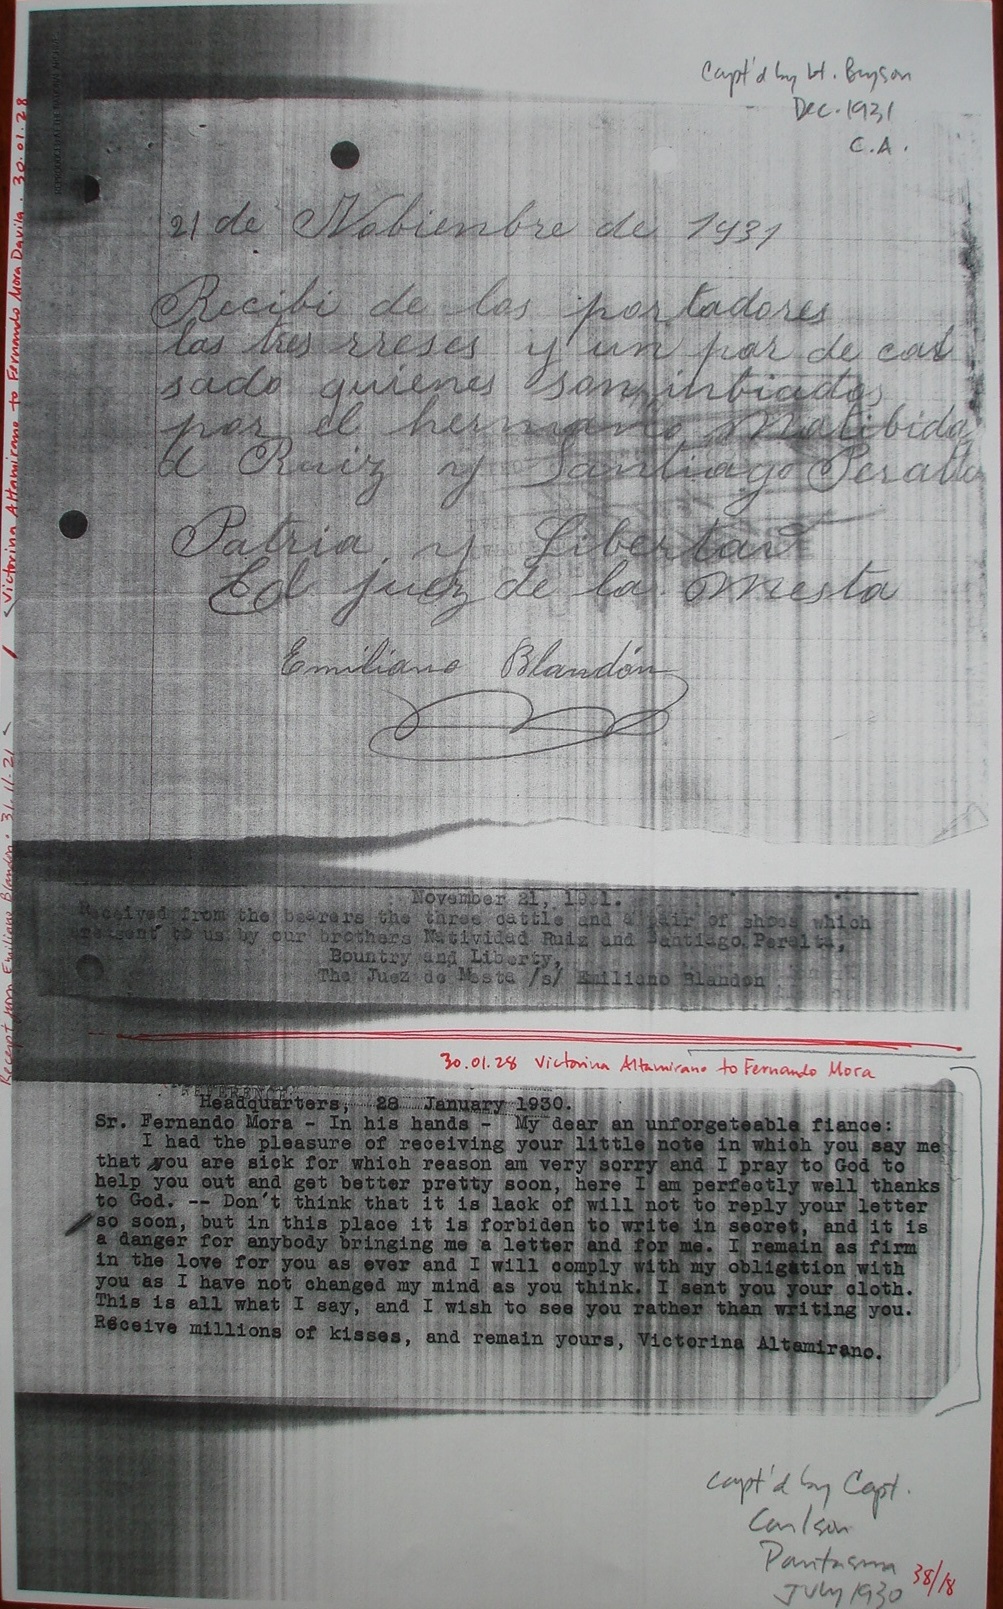 Capt'd by H. Bryson
Dec. 1931
C.A.
21 de Nobienbre de 1931
Recibi de los portadores
las tres rreses y un par de cal
sado quienes son inbiados
por el hermano Matibida
d Ruiz y Santiago Peralta
Patria y Libertad
El juez de la Mesta
Emiliano Blandón
November 21, 1931.
Received from the bearers the three cattle and a pair of shoes which
are sent to us by our brothers Natividad Ruiz and Santiago Peralta,
Bountry and Liberty,
The Juez de Mesta /s/ Emiliano Blandon
30.01.28 Victorina Altamirano to Fernando Mora
Headquarters, 28 January 1930.
Sr. Fernando Mora - In his hands - My dear an unforgeteable fiance:
I had the pleasure of receiving your little note in which you say me
that you are sick for which reason am very sorry and I pray to God to
help you out and get better pretty soon, here I am perfectly well thanks
to God. -- Don't think that it is lack of will not to reply your letter
so soon, but in this place it is forbiden to write in secret, and it is
a danger for anybody bringing me a letter and for me. I remain as firm
in the love for you as ever and I will comply with my obligation with
you as I have not changed my mind as you think. I sent you your cloth.
This is all what I say, and I wish to see you rather than writing you.
Receive millions of kisses, and remain yours, Victorina Altamirano.
Capt'd by Capt.
Carlson
Pantasma
July 1930
38/18
Receipt from Emiliano Blandón . 31.11.21
/ Victorina Altamirano to Fernando Mora Davila . 30.01.28